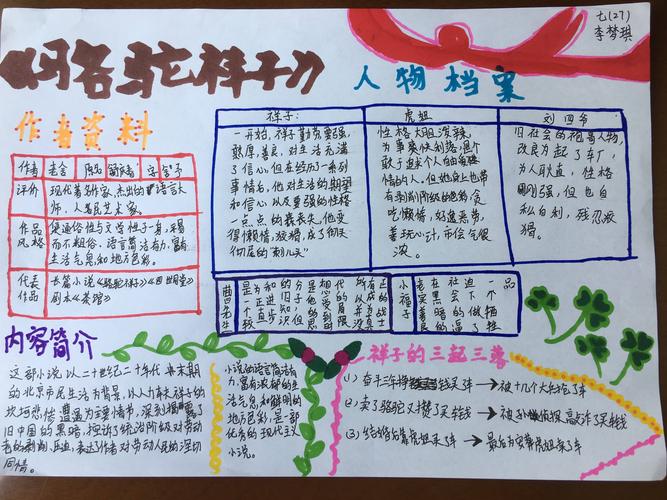 七(27)
李梦琪
《骆驼祥子》
人物档案
作者资料
作者 老舍 原名 舒庆春 字 舍予
评价 现代著名作家、杰出的语言大
师、人民艺术家。
作品 风格 通俗性与文学性于一身,
而不粗俗、语言简洁有力,富有
生活气息和地方色彩。
代表 作品 长篇小说《骆驼祥子》《四世同堂》
剧本《茶馆》
祥子:
一开始,祥子勤劳要强,
憨厚善良,对生活充满
了信心,但在经历了一系列
事情后,他对生活的期望
和信心以及要强的性格
一点点的丧失,他变
得懒惰,狡猾,成了彻头
彻尾的“刹几天”
虎妞
性格大胆泼辣,
为事爽快利落,是个
敢于追求个人
情的人。但她身上也带
有剥削阶级的色彩,贪
吃懒惰,好逸恶劳,
善玩心计,市侩气很
浓。
刘四爷
旧社会的袍哥人物,
改良办起了车厂,
为人耿直,性格
刚强,但也自
私自利,残忍狡
猾。
曹先生
小福子
内容简介
这部小说以二十世纪二十年代末期
的北京市民生活为背景,以人力车夫祥子的
坎坷悲惨遭遇为主要情节,深刻揭露了
旧中国的黑暗,控诉了统治阶级对劳动
者的剥削、压迫,表达作者对劳动人民的深切
同情。
小说的语言简洁有
力,富有浓郁的生
活气息和鲜明的
地方色彩,是一部
优秀的现代主义
小说。
祥子的三起三落
(1) 奋斗三年攒钱买车 → 被十几个大兵抢了车
(2) 卖了骆驼又攒了买车钱 → 被孙侦探敲诈了买车钱
(3) 结婚后靠虎妞买了车 → 最后为安葬虎妞卖了车